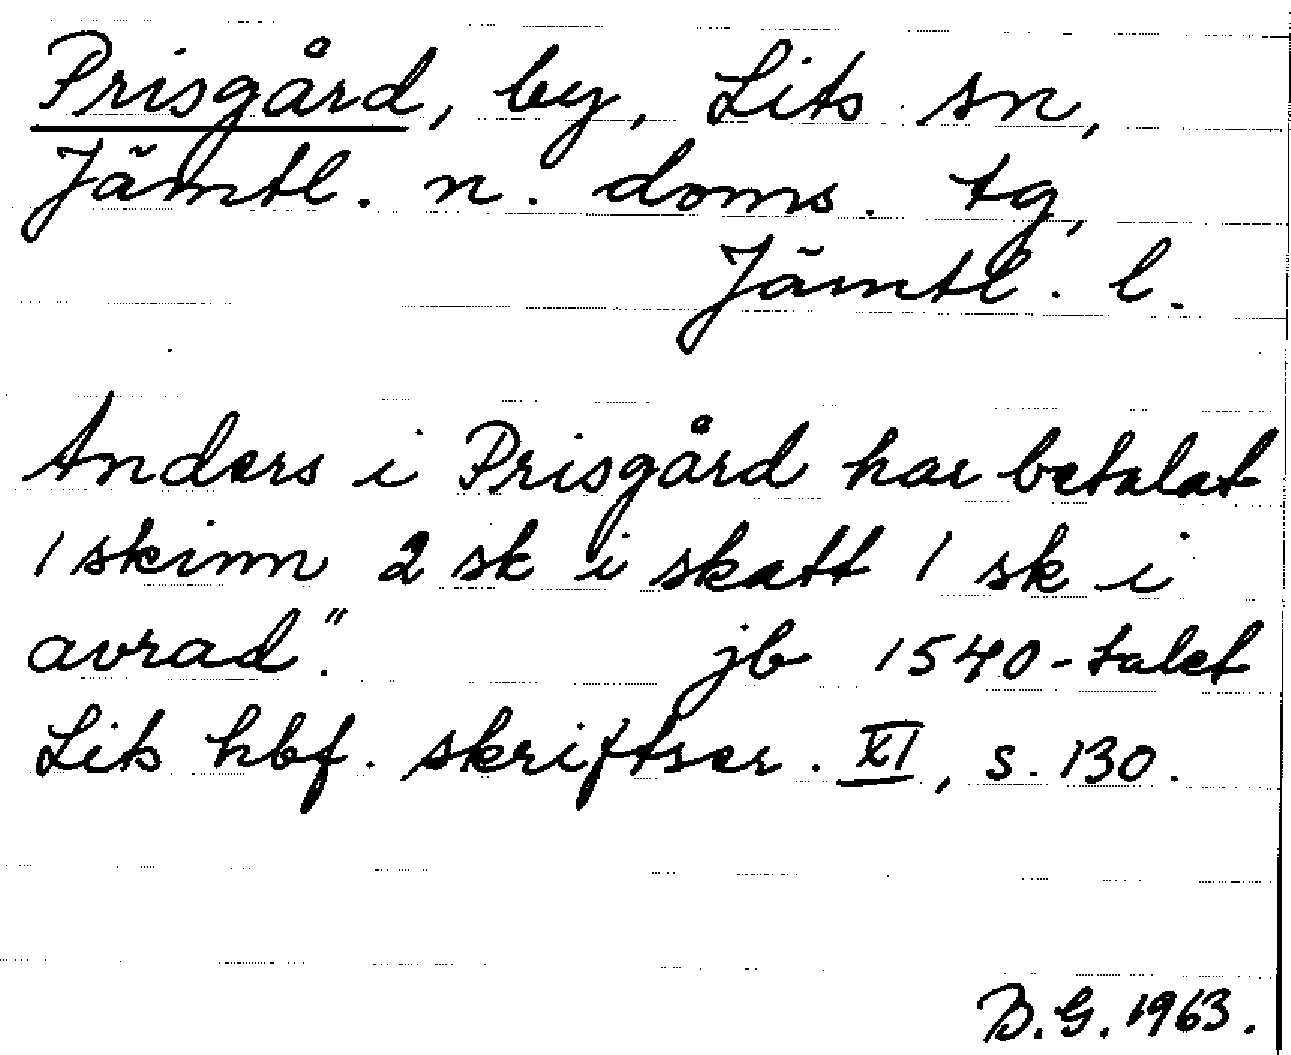 Prisgård, by, Lits sn,
Jämtl. n. doms. tg,
Jämtl. l.
Anders i Prisgård har betalat
1 skinn 2 sk i skatt 1 sk i
avrad." jb 1540-talet
Lits hbf. skriftser. XI, s. 130.
B.G. 1963.